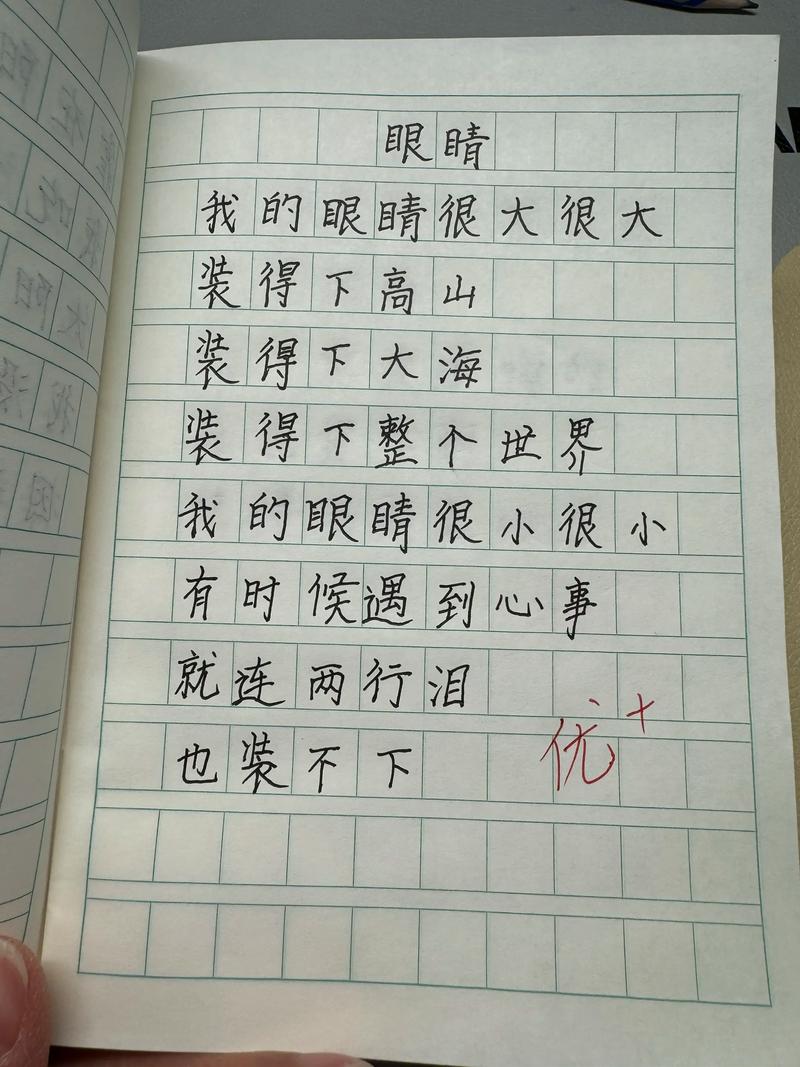 眼睛
我的眼睛很大很大
装得下高山
装得下大海
装得下整个世界
我的眼睛很小很小
有时候遇到心事
就连两行泪
也装不下
优+